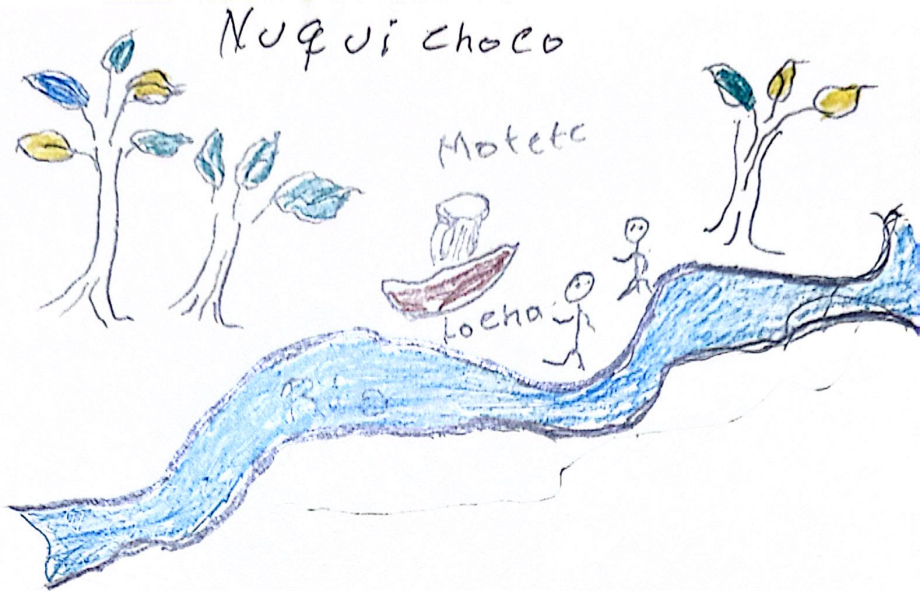 Nuqui choco
Motete
Locha
Rio